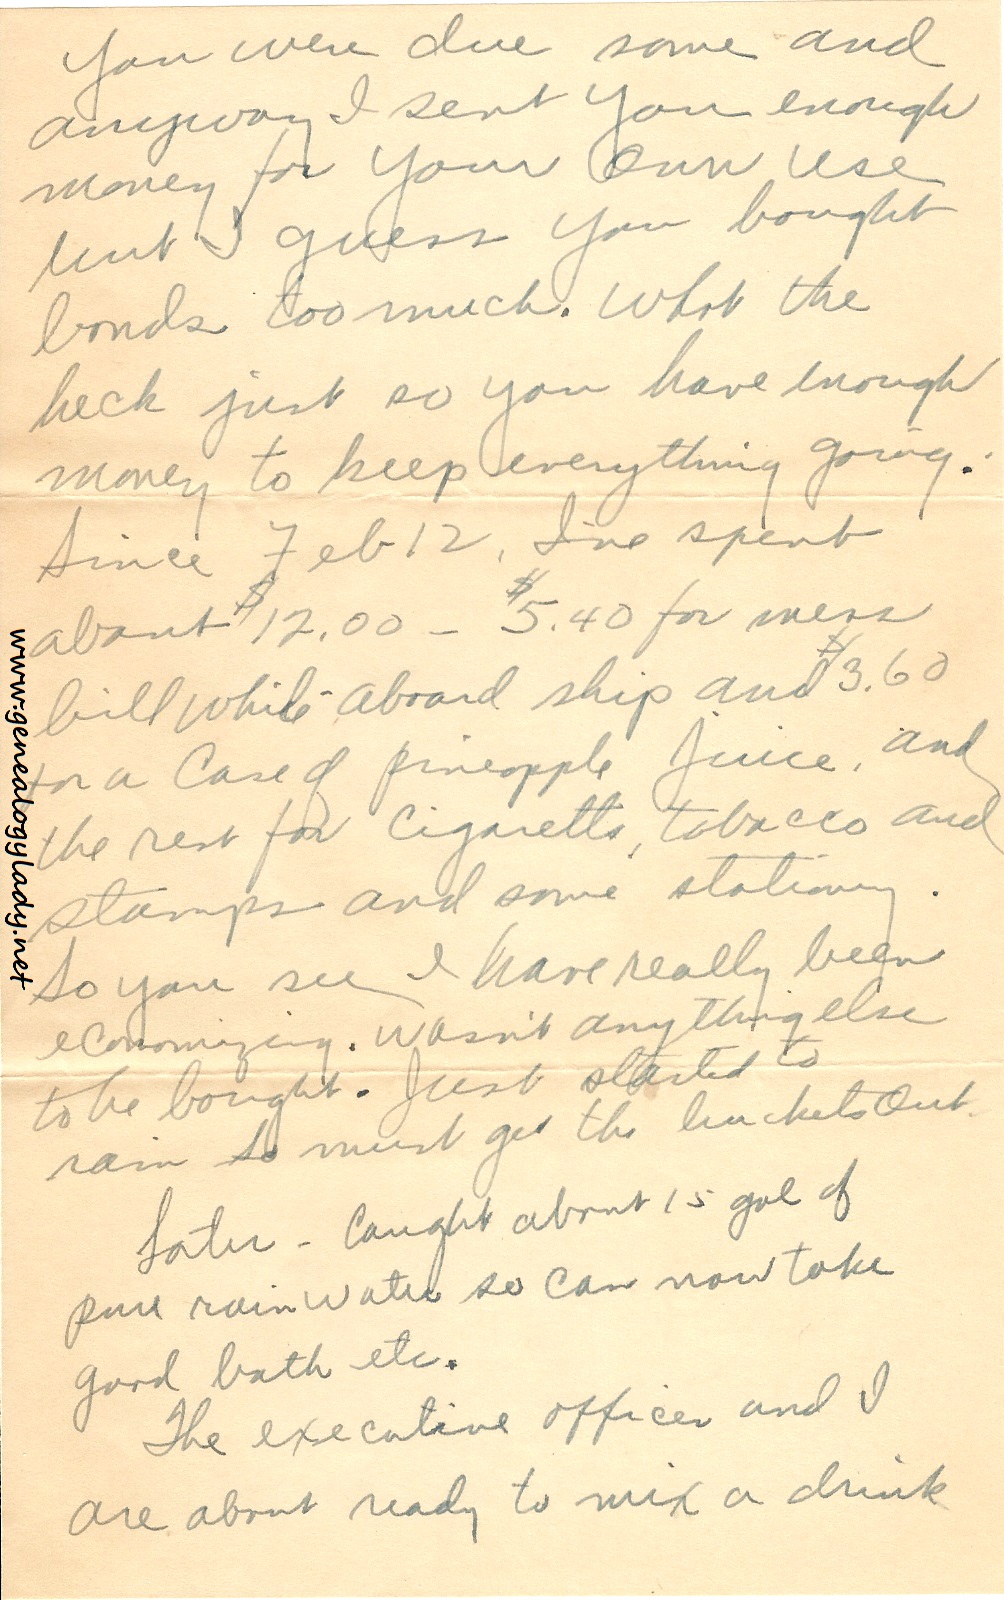 you were due some and
anyway I sent you enough
money for your own use
but I guess you bought
bonds too much. What the
heck just so you have enough
money to keep everything going.
Since Feb 12, I've spent
about $12.00 - $5.40 for mess
bill while aboard ship and $3.60
for a case of pineapple juice, and
the rest for cigaretts, tobacco and
stamps and some stationery.
So you see I have really been
economizing. Wasn't anything else
to be bought. Just started to
rain so must get the buckets out.
Later - Caught about 15 gal of
pure rain water so can now take
good bath etc.
The executive officer and I
are about ready to mix a drink
www.genealogylady.net